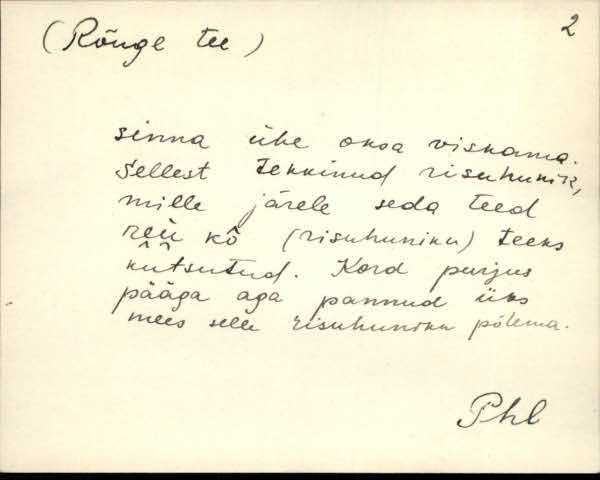 (Rõuge tee)
2
sinna ühe oksa viskama.
Sellest tekkinud risuhunik,
mille järele seda teed
reü kô (risuhuniku) teeks
kütsutud. Kord purjus
pääga aga pannud üks
mees selle risuhuniku põlema.
Phl